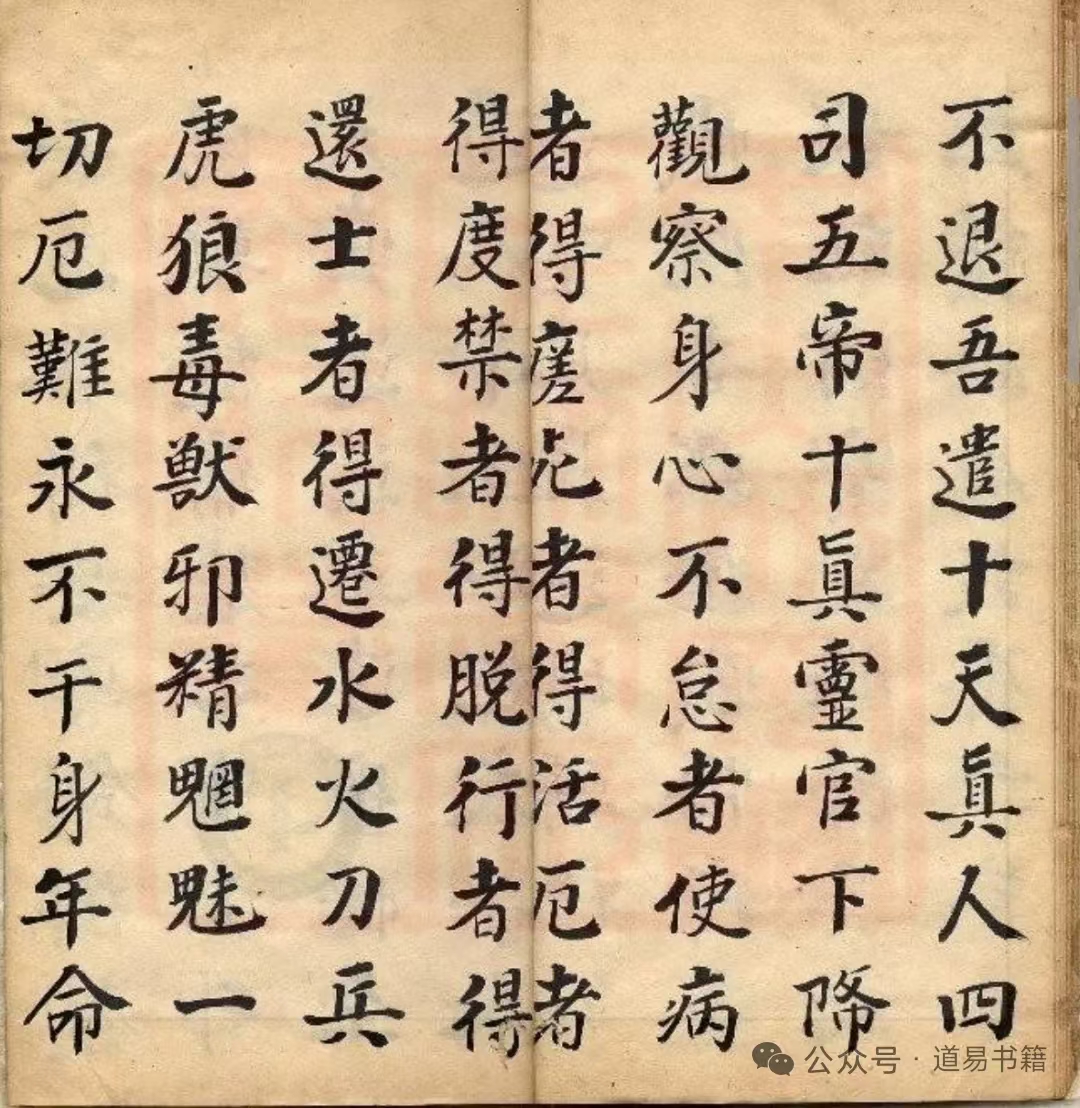 不退吾遣十天眞人四
司五帝十眞靈官下降
觀察身心不怠者使病
者得瘥者得活厄者
得度禁者得脱行者得
還士者得遷水火刀兵
虎狼毒獸邪精魍魅一
切厄難永不干身年命
公众号·道易书籍